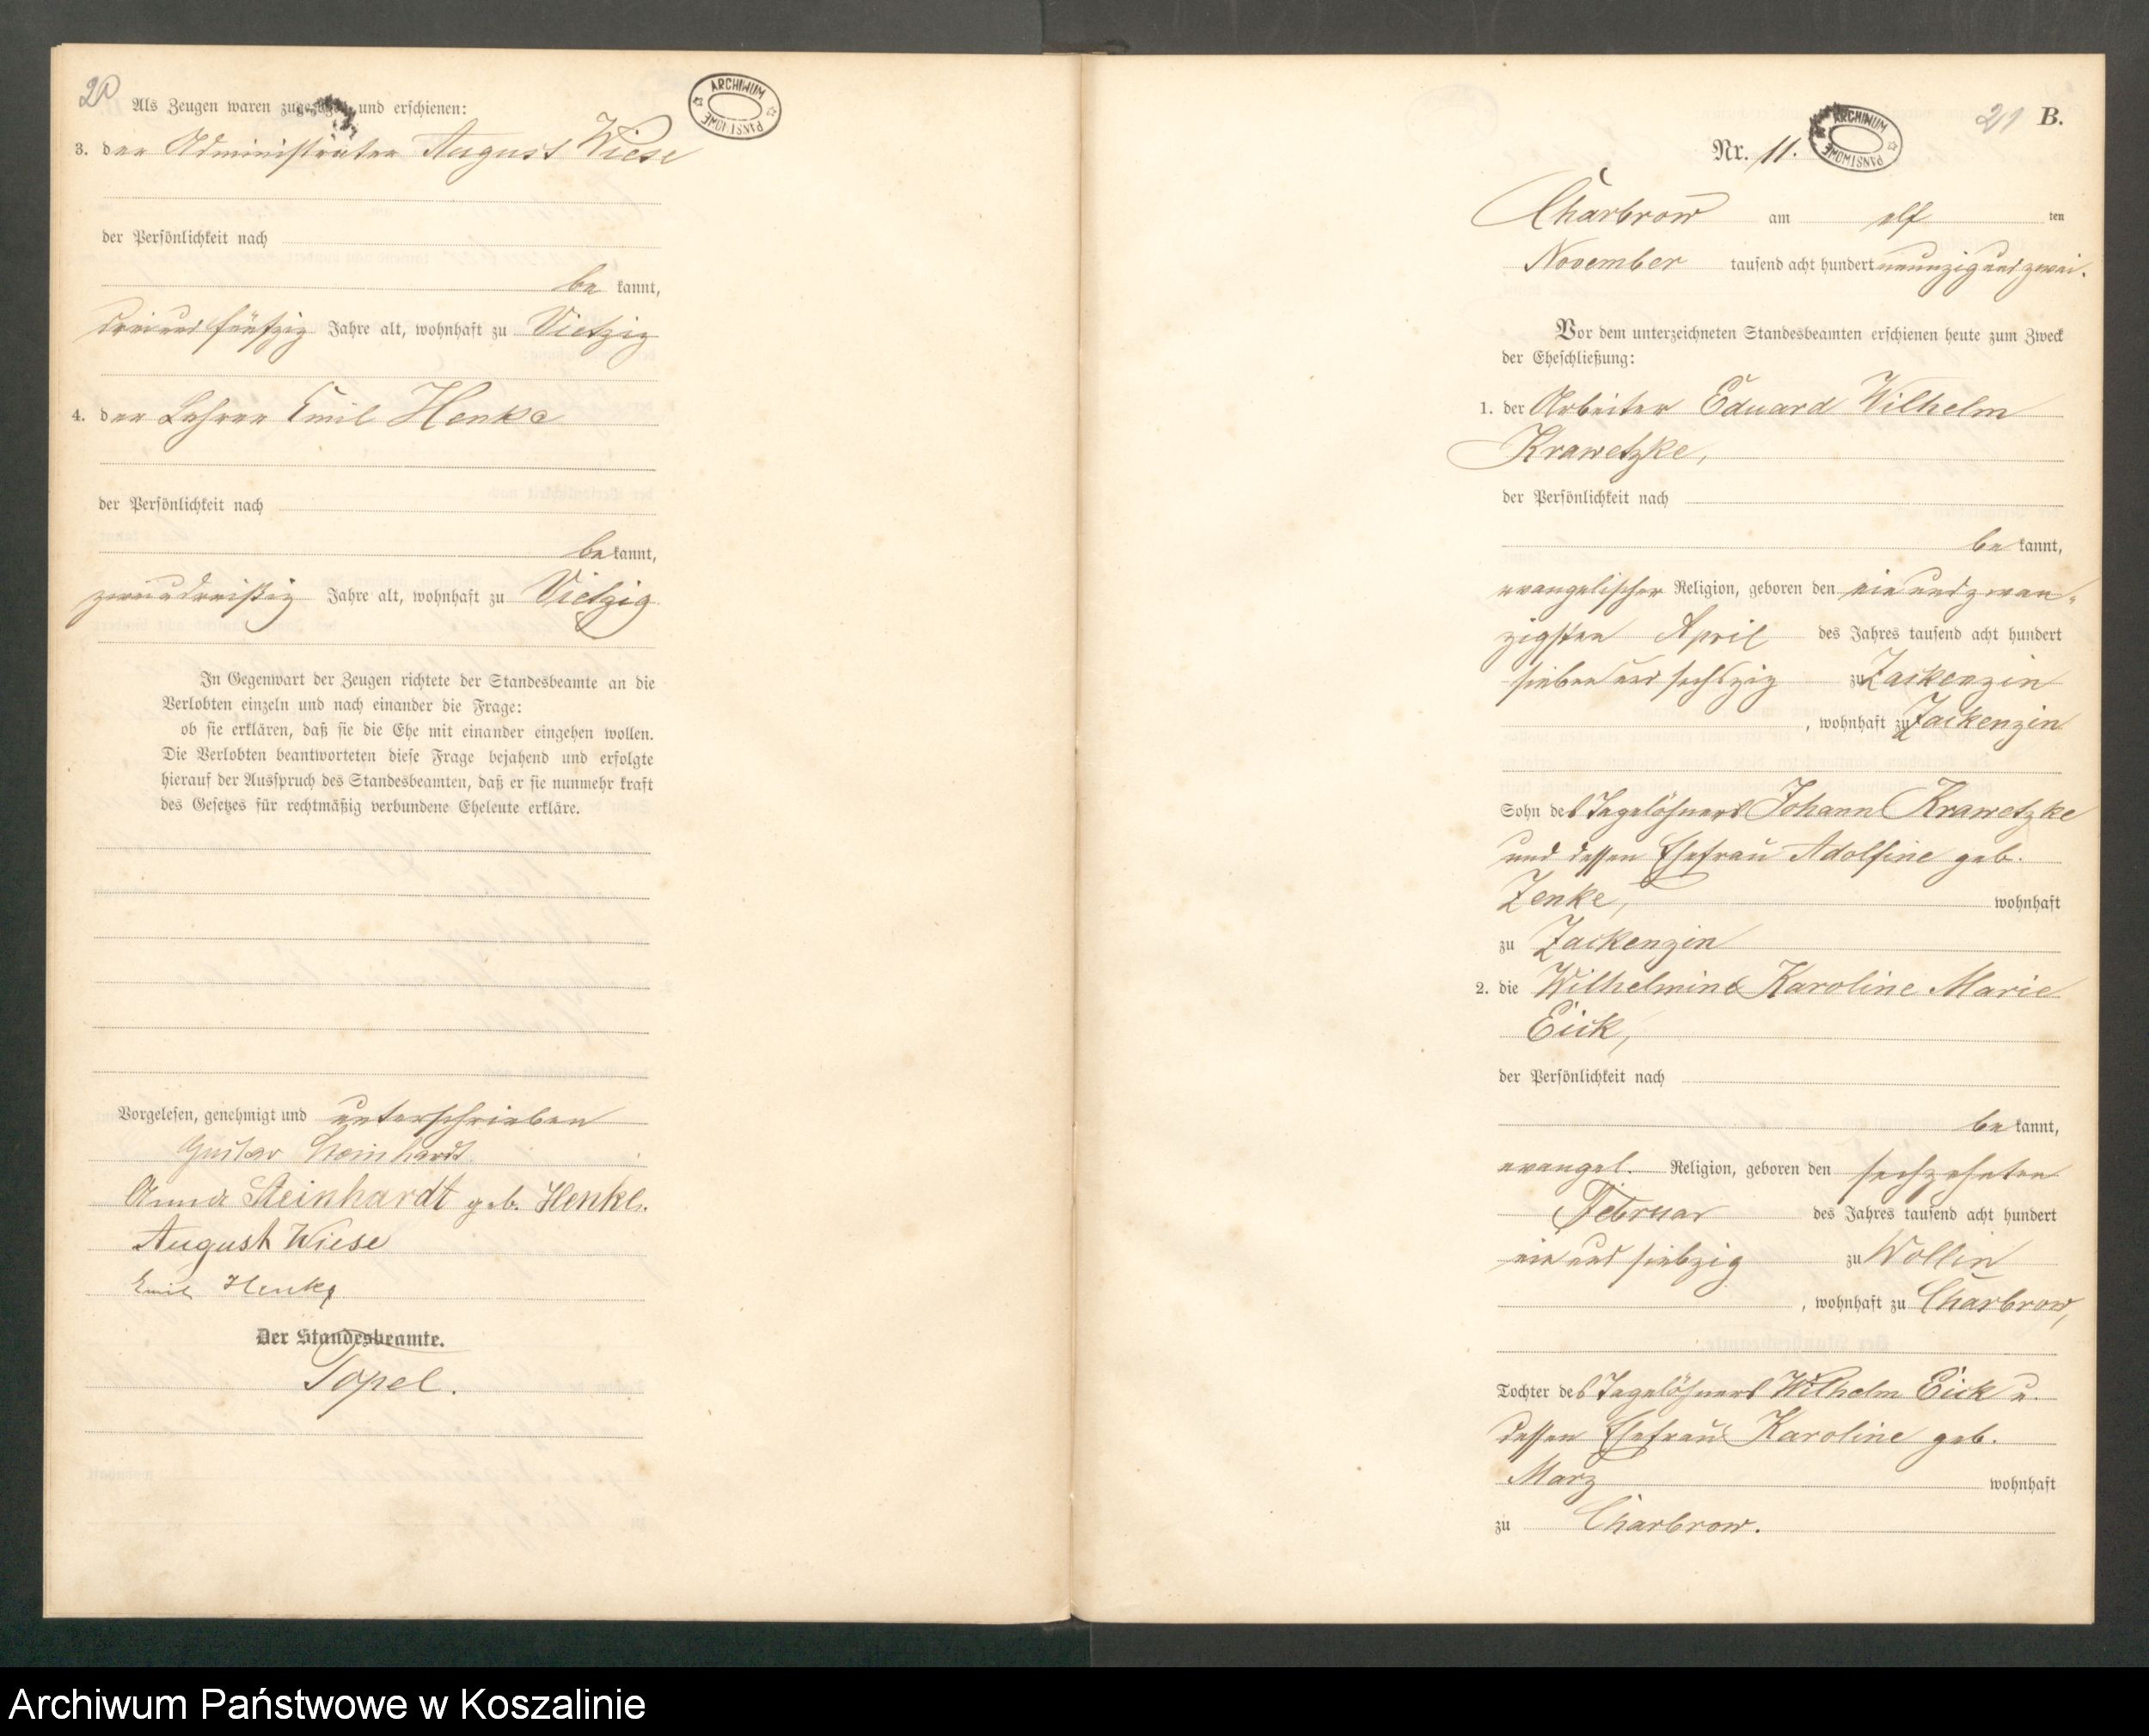 20
Als Zeugen waren zugezogen und erschienen:
ARCHIWUM PAŃSTWOWE
3. der Administrator August Wiese
der Persönlichkeit nach
be kannt,
drei und fünfzig Jahre alt, wohnhaft zu Vietzig
4. der Lehrer Emil Henke
der Persönlichkeit nach
be kannt,
zweiundreißig Jahre alt, wohnhaft zu Vietzig
In Gegenwart der Zeugen richtete der Standesbeamte an die
Verlobten einzeln und nach einander die Frage:
ob sie erklären, daß sie die Ehe mit einander eingehen wollen.
Die Verlobten beantworteten diese Frage bejahend und erfolgte
hierauf der Ausspruch des Standesbeamten, daß er sie nunmehr kraft
des Gesetzes für rechtmäßig verbundene Eheleute erkläre.
Vorgelesen, genehmigt und unterschrieben
Gustav Steinhardt
Anna Steinhardt geb. Henke.
August Wiese
Emil Henke
Der Standesbeamte.
Topel.
21 B.
ARCHIWUM PAŃSTWOWE
Nr. 11.
Charbrow am elf ten
November tausend acht hundert neunzig und zwei.
Vor dem unterzeichneten Standesbeamten erschienen heute zum Zweck
der Eheschließung:
1. der Arbeiter Eduard Wilhelm
Krawetzke,
der Persönlichkeit nach
be kannt,
evangelischer Religion, geboren den ein und zwan-
zigsten April des Jahres tausend acht hundert
sieben und sechszig zu Zackenzin
, wohnhaft zu Zackenzin
Sohn des Tagelöhners Johann Krawetzke
und dessen Ehefrau Adolfine geb.
Zenke, wohnhaft
zu Zackenzin
2. die Wilhelmine Karoline Marie
Eick,
der Persönlichkeit nach
be kannt,
evangel. Religion, geboren den sechzehnten
Februar des Jahres tausend acht hundert
ein und siebzig zu Wollin
, wohnhaft zu Charbrow,
Tochter des Tagelöhners Wilhelm Eick u.
dessen Ehefrau Karoline geb.
Marz wohnhaft
zu Charbrow.
Archiwum Państwowe w Koszalinie